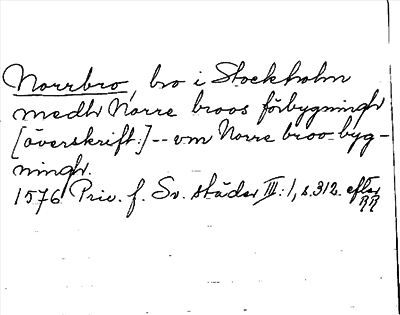 Norrbro, bro i Stockholm
medh Norre broos förbygningh
[överskrift:] -- om Norre broo byg-
ningh.
1576 Priv. f. Sv. städer III: 1, s. 312. efter
RR